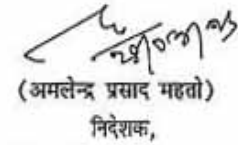 (अमलेन्द्र प्रसाद महतो)
निदेशक,